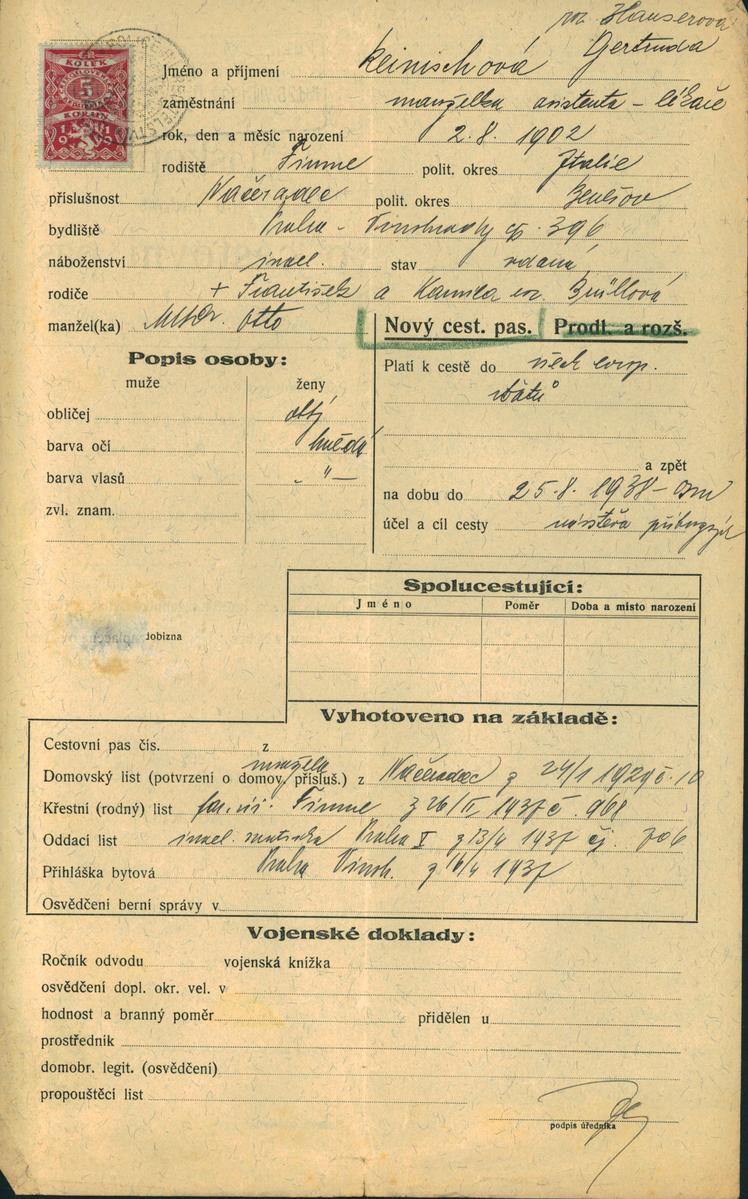 roz. Hauserová
Jméno a příjmení Reinischová Gertruda
zaměstnání manželka asistenta - lékaře
rok, den a měsíc narození 2.8. 1902
rodiště Fiume polit. okres Italie
příslušnost Načeradec polit. okres Benešov
bydliště Praha - Vinohrady čp. 396
náboženství israel. stav vdaná
rodiče + František a Kamila roz. Brüllová
manžel(ka) MUDr. Otto
Nový cest. pas. Prodl. a rozš.
Popis osoby:
muže ženy
obličej
barva očí hnědá
barva vlasů - " -
zvl. znam.
Platí k cestě do všech evrop.
států
a zpět
na dobu do 25.8. 1938
účel a cíl cesty návštěva
Spolucestující:
Jméno Poměr Doba a místo narození
dobizna
Vyhotoveno na základě:
Cestovní pas čís. z
manžela
Domovský list (potvrzení o domov. přísluš.) z Načeradec z 24/1 1929 č. 10
Křestní (rodný) list Fiume z 26/II 1937 č. 968
Oddací list israel. matrika Praha z 13/4 1937 čj. 706
Přihláška bytová Praha Vinoh. z 6/4 1937
Osvědčení berní správy v
Vojenské doklady:
Ročník odvodu vojenská knížka
osvědčení dopl. okr. vel. v
hodnost a branný poměr přidělen u
prostředník
domobr. legit. (osvědčení)
propouštěcí list
podpis úředníka
KOLEK
5
KORUN
1919